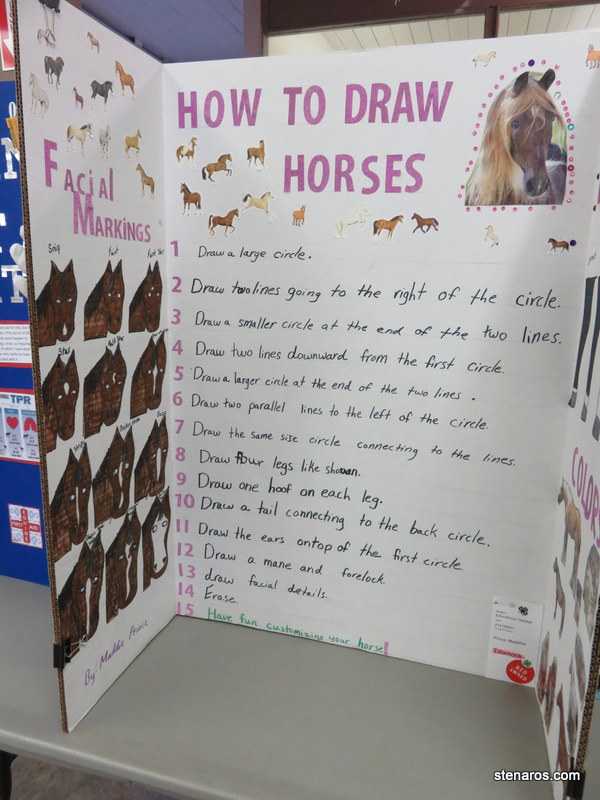 HOW TO DRAW
HORSES
Facial
Markings
Snip
Faint
Star
1 Draw a large circle.
2 Draw two lines going to the right of the circle.
3 Draw a smaller circle at the end of the two lines.
4 Draw two lines downward from the first circle.
5 Draw a larger circle at the end of the two lines.
6 Draw two parallel lines to the left of the circle.
7 Draw the same size circle connecting to the lines.
8 Draw four legs like shown.
9 Draw one hoof on each leg.
10 Draw a tail connecting to the back circle.
11 Draw the ears ontop of the first circle
12 Draw a mane and forelock.
13 draw facial details.
14 Erase.
15 Have fun customizing your horse!
By: Maddie Prince
COLORS
TPR
FIRST AID
Educational Display
Prince, Madeline
Tillamook
RED
AWARD
stenaros.com